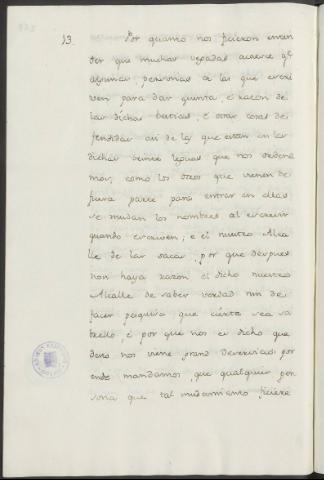 13. Por quanto nos ficieron enten
der que muchas vegadas acaece qe
algunas personas a las que escri
ven para dar quenta, e razon de
las dichas bestias, e otras cosas de
fendidas asi de las que estan en las
dichas veinte leguas que nos ordena
mos, como los otros que vienen de
fuera parte para entrar en ellas
se mudan los nombres al escreuir
quando escriven, e el nuestro Alca
lle de las sacas, por que despues
non haya razon el dicho nuestro
Alcalle de saber verdad nin de
facer pesquisa que cierta sea so
brello, e por que nos en dicho que
desto nos viene grand deservicio por
ende mandamos, que qualquier per
sona que tal mudamiento ficiere